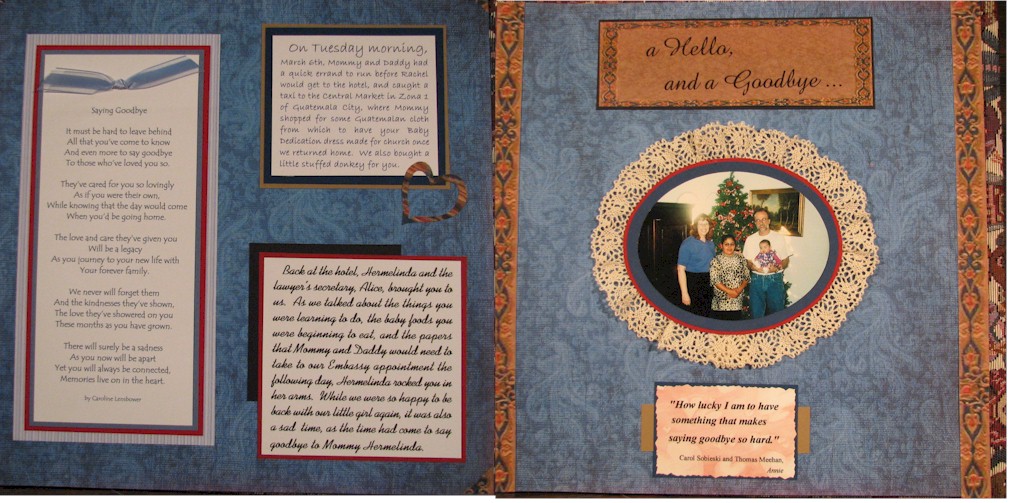 Saying Goodbye
It must be hard to leave behind
All that you've come to know
And even more to say goodbye
To those who've loved you so.
They've cared for you so lovingly
As if you were their own,
While knowing that the day would come
When you'd be going home.
The love and care they've given you
Will be a legacy
As you journey to your new life with
Your forever family.
We never will forget them
And the kindnesses they've shown,
The love they've showered on you
These months as you have grown.
There will surely be a sadness
As you now will be apart
Yet you will always be connected,
Memories live on in the heart.
by Caroline Lensbower
On Tuesday morning,
March 6th, Mommy and Daddy had
a quick errand to run before Rachel
would get to the hotel, and caught a
taxi to the Central Market in Zona 1
of Guatemala City, where Mommy
shopped for some Guatemalan cloth
from which to have your Baby
Dedication dress made for church once
we returned home. We also bought a
little stuffed donkey for you.
Back at the hotel, Hermelinda and the
lawyer's secretary, Alice, brought you to
us. As we talked about the things you
were learning to do, the baby foods you
were beginning to eat, and the papers
that Mommy and Daddy would need to
take to our Embassy appointment the
following day, Hermelinda rocked you in
her arms. While we were so happy to be
back with our little girl again, it was also
a sad time, as the time had come to say
goodbye to Mommy Hermelinda.
a Hello,
and a Goodbye ...
"How lucky I am to have
something that makes
saying goodbye so hard."
Carol Sobieski and Thomas Meehan,
Annie